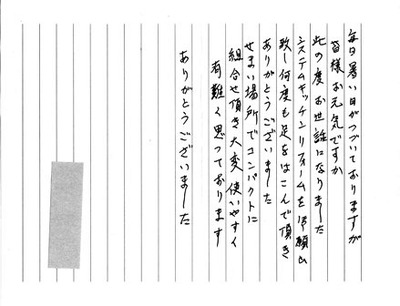 毎日暑い日がつづいておりますが
皆様お元気ですか
此の度お世話になりました
システムキッチンリフォームをお願い
致し何度も足をはこんで頂き
ありがとうございました
せまい場所でコンパクトに
組合せ頂き大変使いやすく
有難く思っております
ありがとうございました